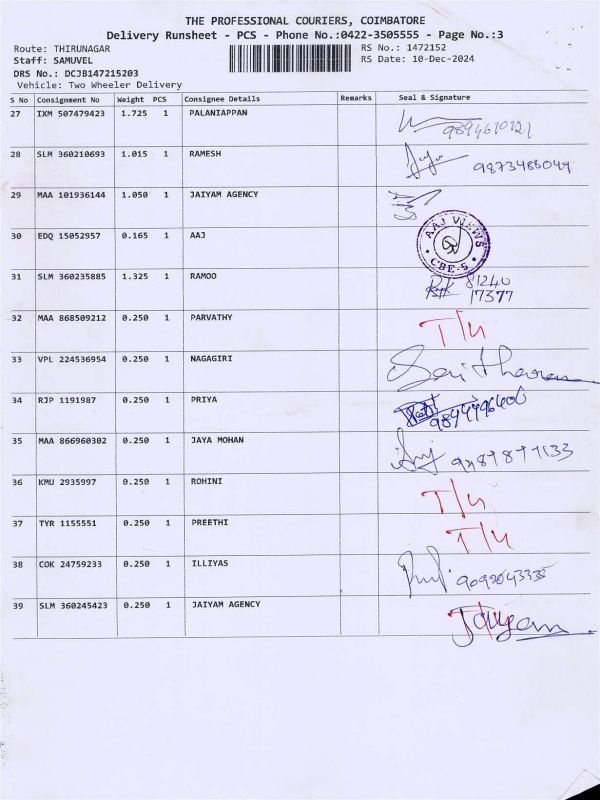 THE PROFESSIONAL COURIERS, COIMBATORE
Delivery Runsheet - PCS - Phone No.:0422-3505555 - Page No.:3
Route: THIRUNAGAR RS No.: 1472152
Staff: SAMUVEL RS Date: 10-Dec-2024
DRS No.: DCJB147215203
Vehicle: Two Wheeler Delivery
S No Consignment No Weight PCS Consignee Details Remarks Seal & Signature
27 IXM 507479423 1.725 1 PALANIAPPAN
28 SLM 360210693 1.015 1 RAMESH
29 MAA 101936144 1.050 1 JAIYAM AGENCY
30 EDQ 15052957 0.165 1 AAJ AAJ VIEWS CBE-5
31 SLM 360235885 1.325 1 RAMOO 81240
17377
32 MAA 868509212 0.250 1 PARVATHY T/4
33 VPL 224536954 0.250 1 NAGAGIRI
34 RJP 1191987 0.250 1 PRIYA
35 MAA 866960302 0.250 1 JAYA MOHAN
36 KMU 2935997 0.250 1 ROHINI T/4
37 TYR 1155551 0.250 1 PREETHI T/4
38 COK 24759233 0.250 1 ILLIYAS
39 SLM 360245423 0.250 1 JAIYAM AGENCY Jaiyam